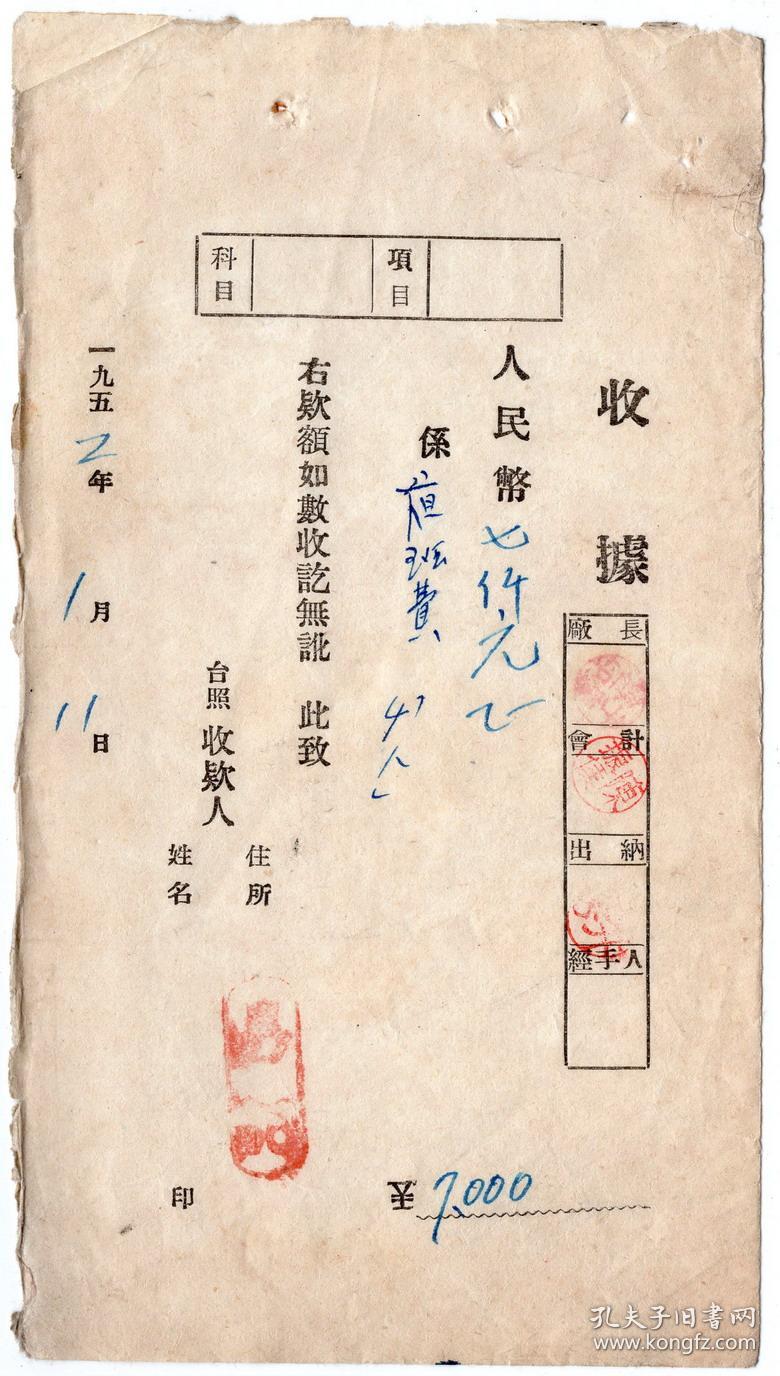 收據
廠長
會計
出納
經手人
項目
科目
人民幣七仟元正
係 值班費 4人
右欵額如數收訖無訛 此致
台照
收欵人
住所
姓名
印
一九五2年1月11日
7.000
孔夫子旧书网
www.kongfz.com